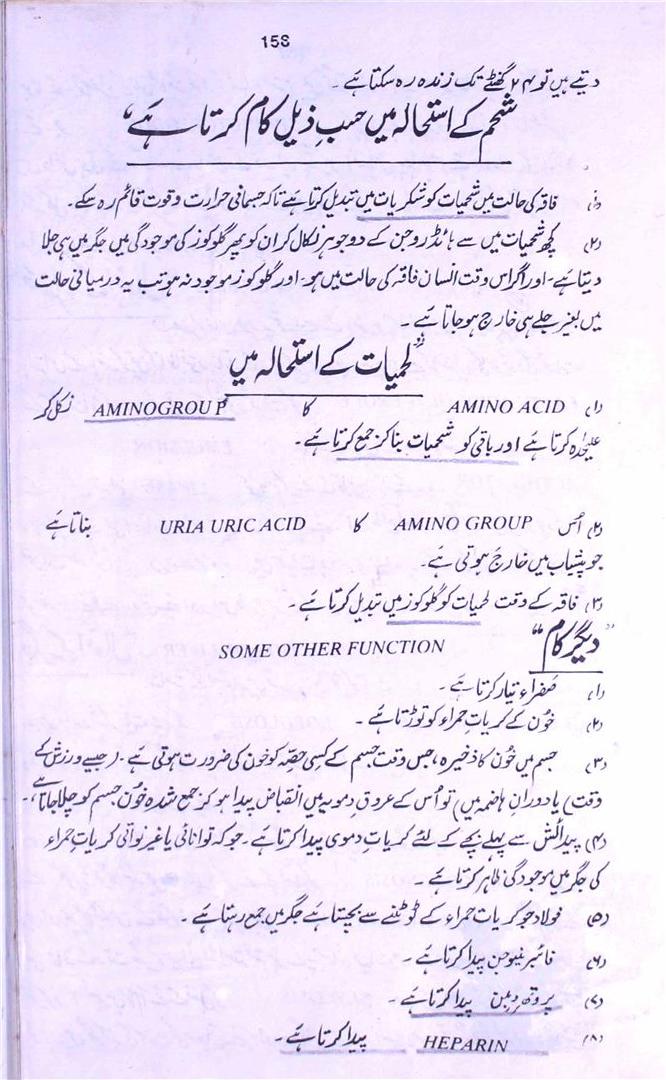 158
دیتے ہیں تو ۲۴ گھنٹے تک زندہ رہ سکتا ہے۔
شحم کے استحالہ میں حسبِ ذیل کام کرتا ہے،
(۱) فاقہ کی حالت میں شحمیات کو شکریات میں تبدیل کرتا ہے تاکہ جسمانی حرارت و قوت قائم رہ سکے۔
(۲) کچھ شحمیات میں سے ہائڈروجن کے دو جوہر نکال کر ان کو پھر گلوکوز کی موجودگی میں جگر میں ہی جلا
دیتا ہے۔ اور اگر اس وقت انسان فاقہ کی حالت میں ہو۔ اور گلوکوز موجود نہ ہو تب یہ درمیانی حالت
میں بغیر جلے ہی خارج ہو جاتا ہے۔
لحمیات کے استحالہ میں
(۱) AMINO ACID کا AMINOGROUP نکل کر
علیحدہ کرتا ہے اور باقی کو شحمیات بنا کر جمع کرتا ہے۔
(۲) اُس AMINO GROUP کا URIA URIC ACID بناتا ہے
جو پیشاب میں خارج ہوتی ہے۔
(۳) فاقہ کے وقت لحمیات کو گلوکوز میں تبدیل کرتا ہے۔
"دیگر کام" SOME OTHER FUNCTION
(۱) صفراء تیار کرتا ہے۔
(۲) خون کے کریات حمراء کو توڑتا ہے۔
(۳) جسم میں خُون کا ذخیرہ، جس وقت جسم کے کسی حصّہ کو خون کی ضرورت ہوتی ہے۔ (جیسے ورزش کے
وقت) یا دورانِ ہاضمہ میں) تو اُس کے عروقِ دمویہ میں انقباض پیدا ہو کر جمع شدہ خُون، جسم کو چلا جاتا ہے،۔
(۴) پیدائش سے پہلے بچے کے لئے کریات دموی پیدا کرتا ہے۔ جو کہ توانائی یا غیر نواتی کریات حمراء
کی جگر میں موجودگی ظاہر کرتا ہے۔
(۵) فولاد جو کریات حمراء کے ٹوٹنے سے بچتا ہے جگر میں جمع رہتا ہے۔
(۶) فائبرینوجن پیدا کرتا ہے۔
(۷) پروتھرومبن پیدا کرتا ہے۔
(۸) HEPARIN پیدا کرتا ہے۔